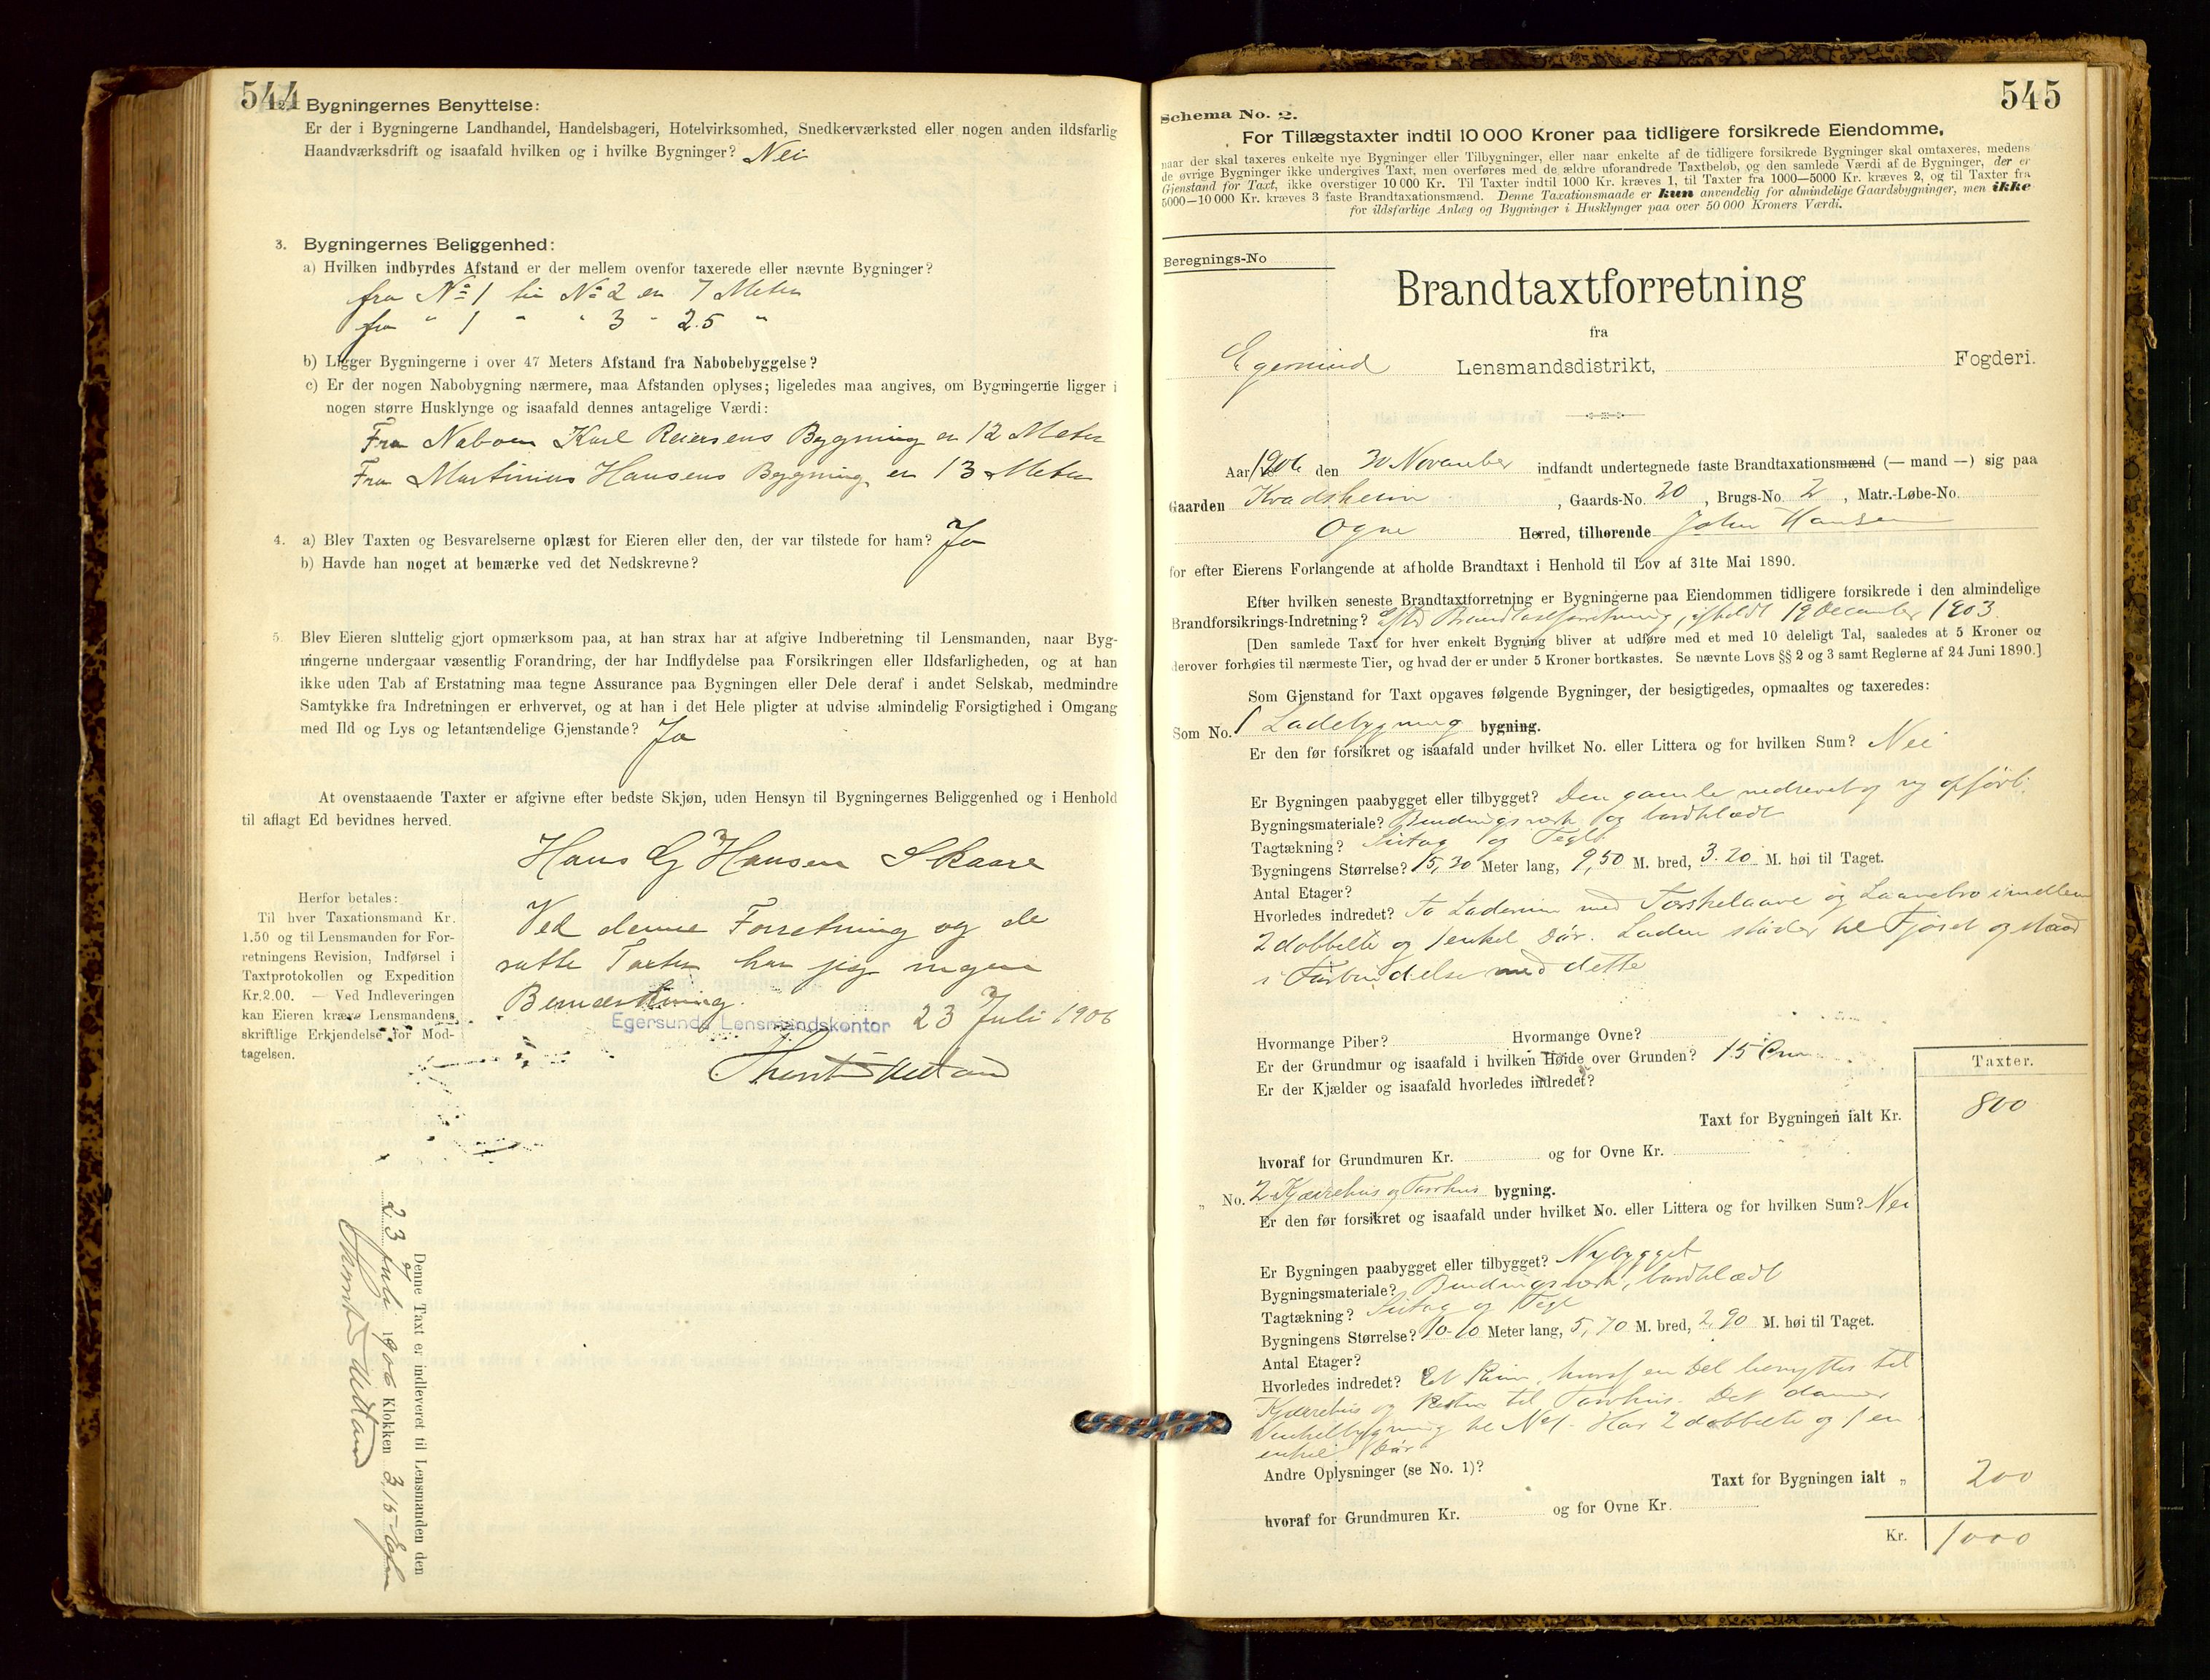 544
2. Bygningernes Benyttelse:
Er der i Bygningerne Landhandel, Handelsbageri, Hotelvirksomhed, Snedkerværksted eller nogen anden ildsfarlig
Haandværksdrift og isaafald hvilken og i hvilke Bygninger? Nei
3. Bygningernes Beliggenhed:
a) Hvilken indbyrdes Afstand er der mellem ovenfor taxerede eller nævnte Bygninger?
fra No 1 til No 2 er 7 Meter
fra " 1 " " 3 " 2.5 "
b) Ligger Bygningerne i over 47 Meters Afstand fra Nabobebyggelse?
c) Er der nogen Nabobygning nærmere, maa Afstanden oplyses; ligeledes maa angives, om Bygningerne ligger i
nogen større Husklynge og isaafald dennes antagelige Værdi:
Fra Naboen Karl Reiersens Bygning er 12 Meter
Fra Martinius Hansens Bygning er 13 Meter
4. a) Blev Taxten og Besvarelserne oplæst for Eieren eller den, der var tilstede for ham? Ja
b) Havde han noget at bemærke ved det Nedskrevne?
5. Blev Eieren sluttelig gjort opmærksom paa, at han strax har at afgive Indberetning til Lensmanden, naar Byg-
ningerne undergaar væsentlig Forandring, der har Indflydelse paa Forsikringen eller Ildsfarligheden, og at han
ikke uden Tab af Erstatning maa tegne Assurance paa Bygningen eller Dele deraf i andet Selskab, medmindre
Samtykke fra Indretningen er erhvervet, og at han i det Hele pligter at udvise almindelig Forsigtighed i Omgang
med Ild og Lys og letantændelige Gjenstande? Ja
At ovenstaaende Taxter er afgivne efter bedste Skjøn, uden Hensyn til Bygningernes Beliggenhed og i Henhold
til aflagt Ed bevidnes herved.
Hans G Hansen Skaare
Herfor betales:
Til hver Taxationsmand Kr.
1.50 og til Lensmanden for For-
retningens Revision, Indførsel i
Taxtprotokollen og Expedition
Kr. 2.00. — Ved Indleveringen
kan Eieren kræve Lensmandens
skriftlige Erkjendelse for Mod-
tagelsen.
Ved denne Forretning og de
satte Taxter har jeg ingen
Bemærkning.
Egersunds Lensmandskontor 23 Juli 1906
Denne Taxt er indleveret til Lensmanden den
23 Juli 1906 Klokken 3,15
545
Schema No. 2.
For Tillægstaxter indtil 10 000 Kroner paa tidligere forsikrede Eiendomme,
naar der skal taxeres enkelte nye Bygninger eller Tilbygninger, eller naar enkelte af de tidligere forsikrede Bygninger skal omtaxeres, medens
de øvrige Bygninger ikke undergives Taxt, men overføres med de ældre uforandrede Taxtbeløb, og den samlede Værdi af de Bygninger, der er
Gjenstand for Taxt, ikke overstiger 10 000 Kr. Til Taxter indtil 1000 Kr. kræves 1, til Taxter fra 1000—5000 Kr. kræves 2, og til Taxter fra
5000—10 000 Kr. kræves 3 faste Brandtaxationsmænd. Denne Taxationsmaade er kun anvendelig for almindelige Gaardsbygninger, men ikke
for ildsfarlige Anlæg og Bygninger i Husklynger paa over 50 000 Kroners Værdi.
Beregnings-No
Brandtaxtforretning
fra
Egersund Lensmandsdistrikt, Fogderi.
Aar 1906 den 30 November indfandt undertegnede faste Brandtaxationsmænd (— mand —) sig paa
Gaarden Kvadsheim, Gaards-No. 20, Brugs-No. 2, Matr.-Løbe-No.
Ogne Herred, tilhørende John Hansen
for efter Eierens Forlangende at afholde Brandtaxt i Henhold til Lov af 31te Mai 1890.
Efter hvilken seneste Brandtaxtforretning er Bygningerne paa Eiendommen tidligere forsikrede i den almindelige
Brandforsikrings-Indretning? Efter Brandtaxtforretning, afholdt 19 December 1903
[Den samlede Taxt for hver enkelt Bygning bliver at udføre med et med 10 deleligt Tal, saaledes at 5 Kroner og
derover forhøies til nærmeste Tier, og hvad der er under 5 Kroner bortkastes. Se nævnte Lovs §§ 2 og 3 samt Reglerne af 24 Juni 1890.]
Som Gjenstand for Taxt opgaves følgende Bygninger, der besigtigedes, opmaaltes og taxeredes:
Som No. 1 Ladebygning bygning.
Er den før forsikret og isaafald under hvilket No. eller Littera og for hvilken Sum? Nei
Er Bygningen paabygget eller tilbygget? Den gamle nedrevet og ny opført.
Bygningsmateriale? Bindingsværk og bordklædt
Tagtækning? Sutag og Tegl
Bygningens Størrelse? 15,30 Meter lang, 9,50 M. bred, 3.20 M. høi til Taget.
Antal Etager?
Hvorledes indredet? To Laderum med Tærskelaave og Laavebro imellem
2 dobbelte og 1 enkel Dør. Laden støder til Fjøset og staar
i Forbindelse med dette
Hvormange Piber? Hvormange Ovne?
Er der Grundmur og isaafald i hvilken Høide over Grunden? 15 Cm
Er der Kjælder og isaafald hvorledes indredet?
Taxter.
Taxt for Bygningen ialt Kr. 800
hvoraf for Grundmuren Kr. og for Ovne Kr.
" No. 2 Kjærrehus og Torvhus bygning.
Er den før forsikret og isaafald under hvilket No. eller Littera og for hvilken Sum? Nei
Er Bygningen paabygget eller tilbygget? Nybygget
Bygningsmateriale? Bindingsværk, bordklædt
Tagtækning? Sutag og Tegl
Bygningens Størrelse? 10-10 Meter lang, 5,70 M. bred, 2,90 M. høi til Taget.
Antal Etager?
Hvorledes indredet? Et Rum, hvoraf en Del benyttes til
Kjærrehus og Resten til Torvhus. Det danner
Vinkelbygning til No 1. Har 2 dobbelte og 1 en
enkel Dør
Andre Oplysninger (se No. 1)?
Taxt for Bygningen ialt " 200
hvoraf for Grundmuren Kr. og for Ovne Kr.
Kr. 1000